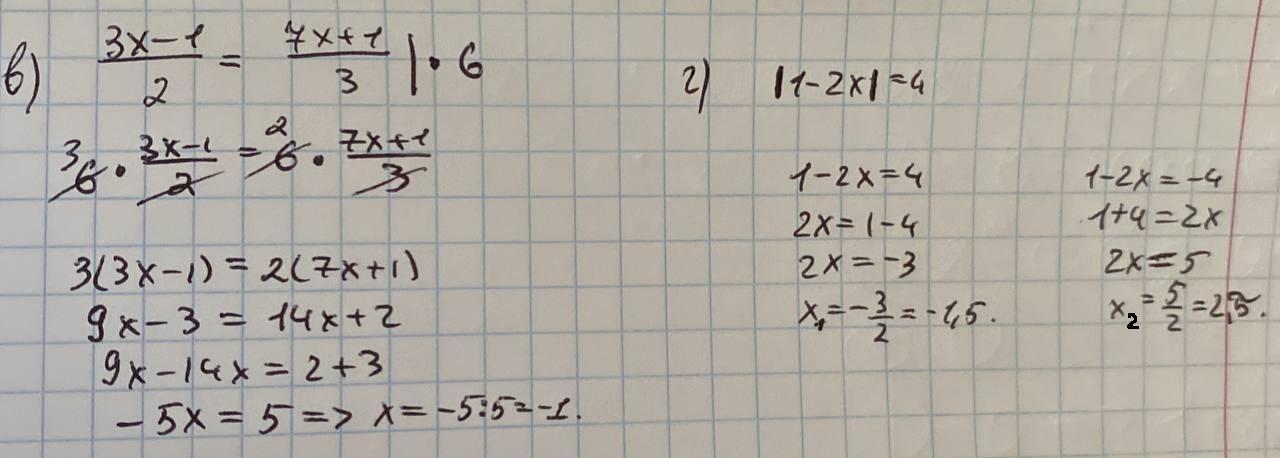 в) (3x-1)/2 = (7x+1)/3 | · 6
³6 · (3x-1)/2 = ²6 · (7x+1)/3
3(3x-1) = 2(7x+1)
9x-3 = 14x+2
9x-14x = 2+3
-5x = 5 => x = -5:5 = -1.
г) |1-2x| = 4
1-2x = 4
2x = 1-4
2x = -3
x₁ = -3/2 = -1,5.
1-2x = -4
1+4 = 2x
2x = 5
x₂ = 5/2 = 2,5.